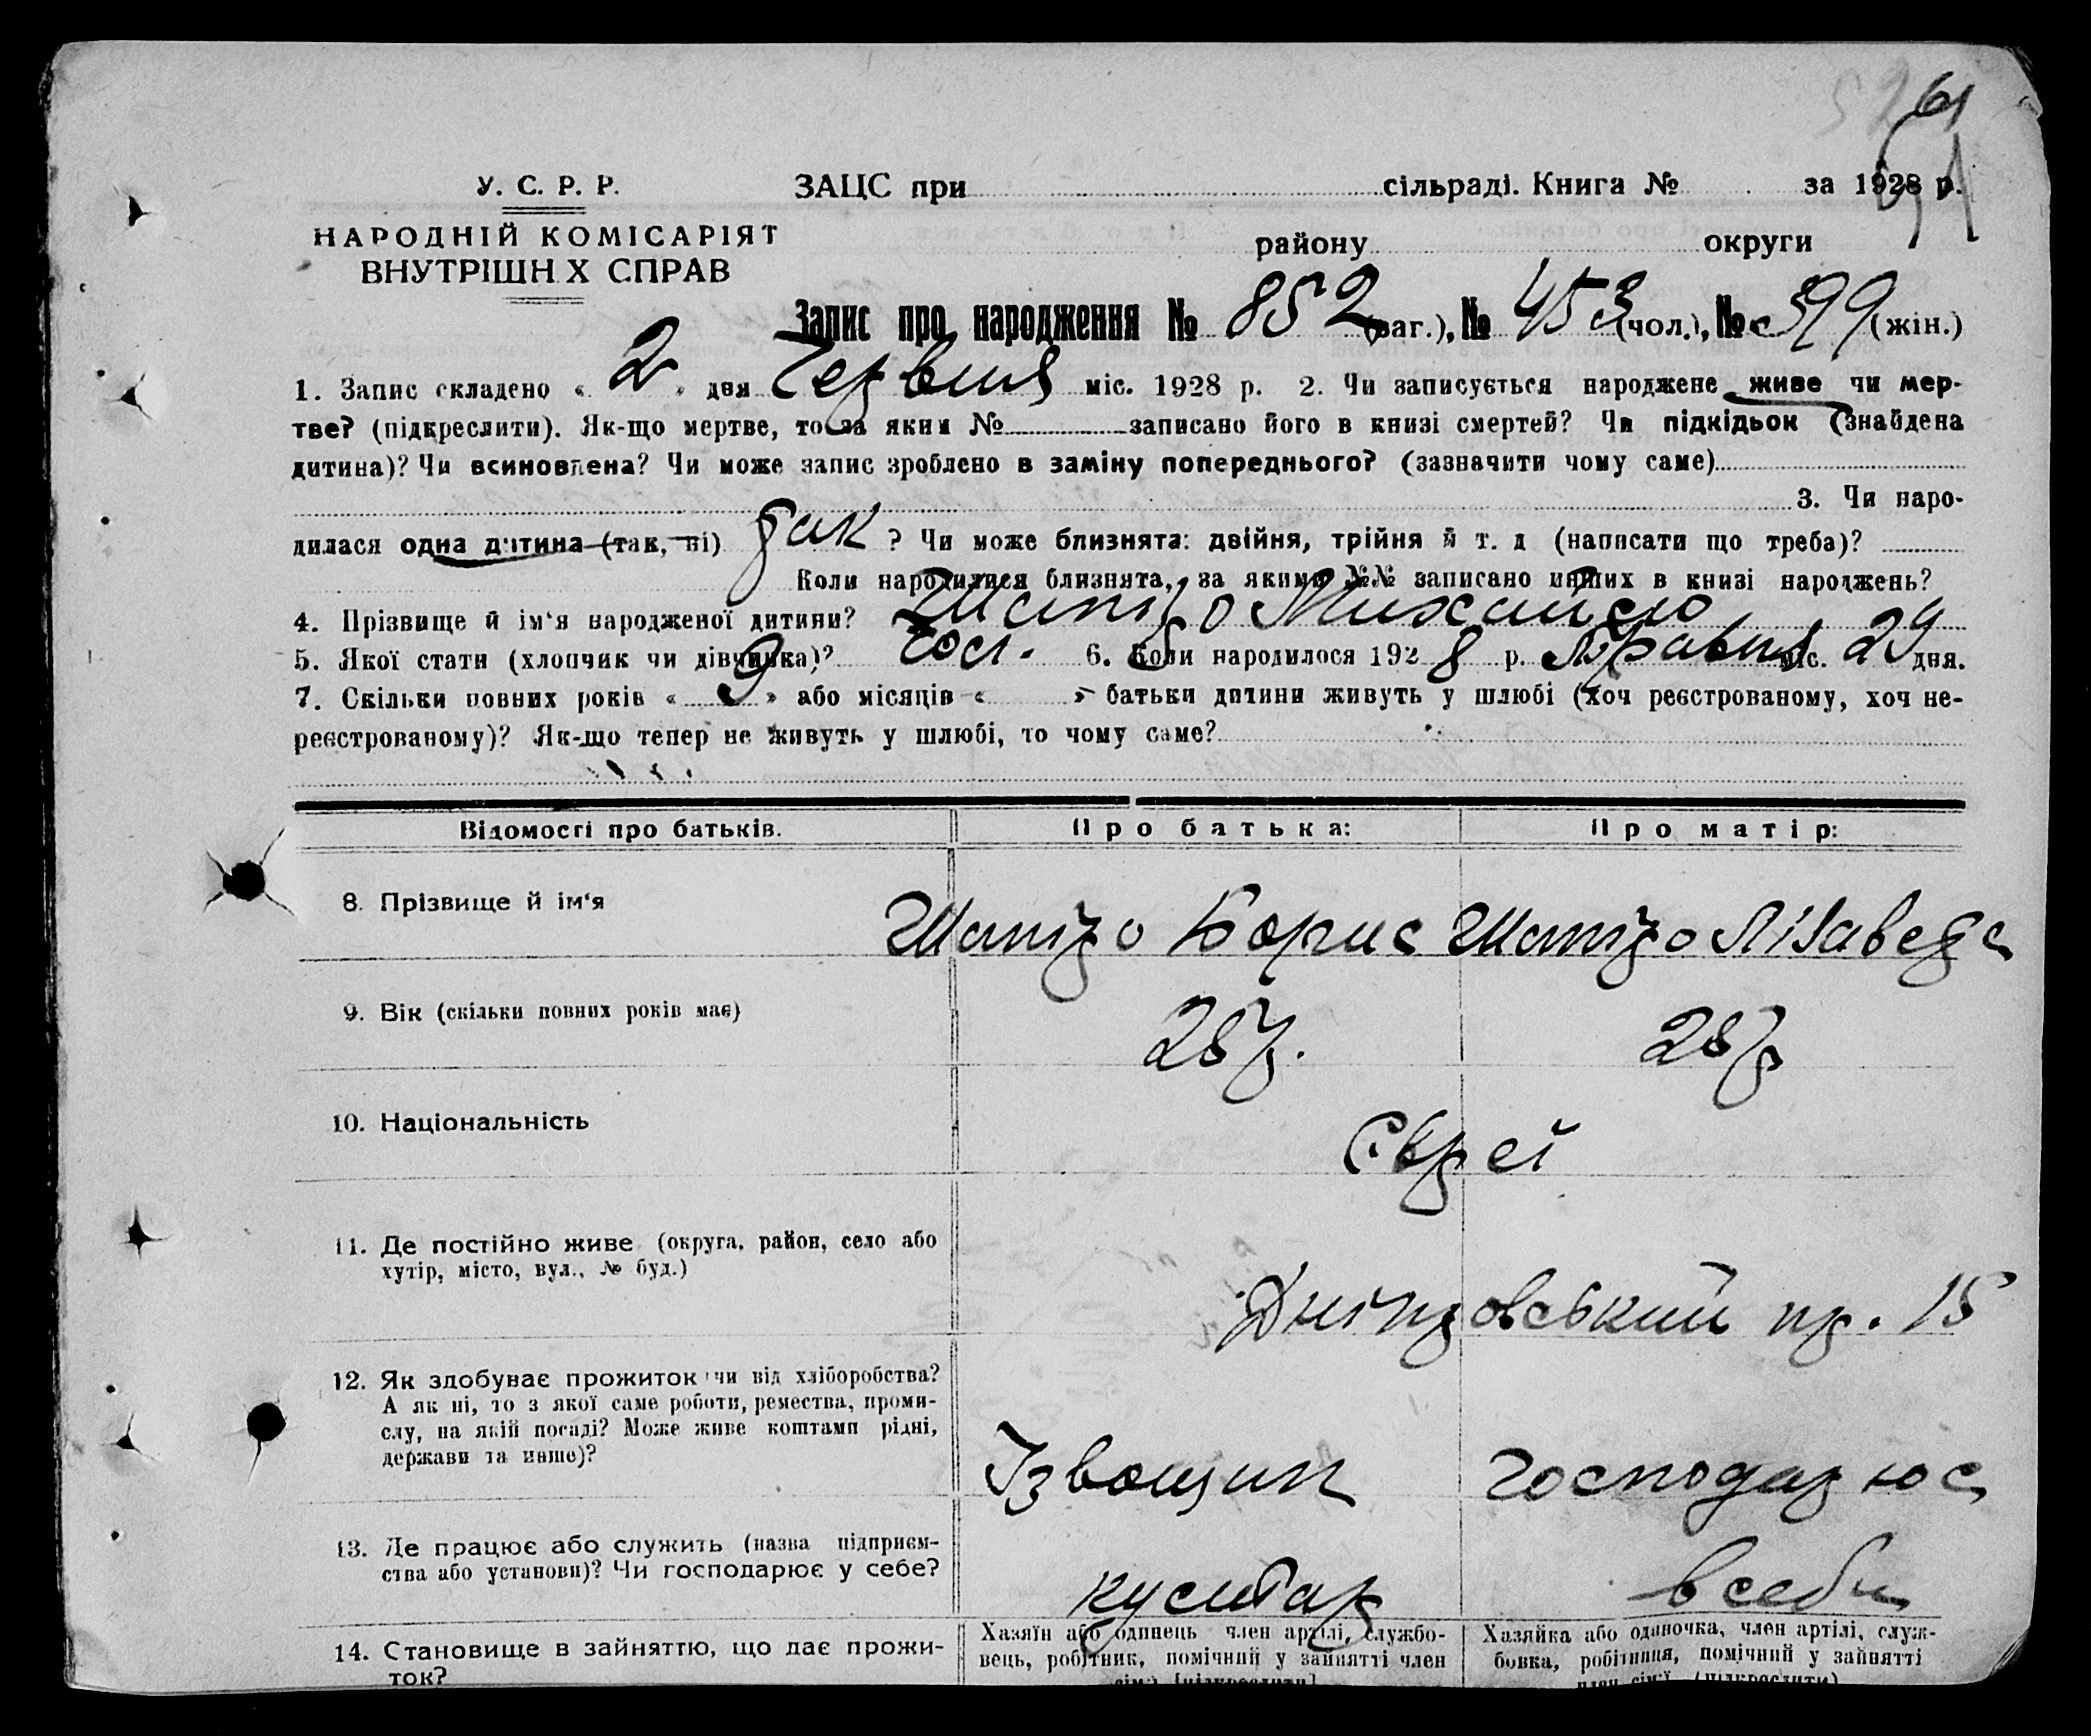 61
У. С. Р. Р.
ЗАЦС при сільраді. Книга № за 1928 р.
НАРОДНІЙ КОМІСАРІЯТ
ВНУТРІШН Х СПРАВ
району округи
Запис про народження № 852 (заг.), № 453 (чол.), № 399 (жін.)
1. Запис складено « 2 » дня Червня міс. 1928 р. 2. Чи записується народжене живе чи мер-
тве? (підкреслити). Як-що мертве, то за яким № записано його в книзі смертей? Чи підкідьок (знайдена
дитина)? Чи всиновлена? Чи може запис зроблено в заміну попереднього? (зазначити чому саме)
3. Чи наро-
дилася одна дитина (так, ні) так ? Чи може близнята: двійня, трійня й т. д (написати що треба)?
Коли народилися близнята, за якими №№ записано инших в книзі народжень?
4. Прізвище й ім'я народженої дитини? Шапіро Михайло
5. Якої стати (хлопчик чи дівчинка)? чол. 6. Коли народилося 1928 р. Травня міс. 29 дня.
7. Скільки повних років « 9 » або місяців « » батьки дитини живуть у шлюбі (хоч реєстрованому, хоч не-
реєстрованому)? Як-що тепер не живуть у шлюбі, то чому саме?
Відомості про батьків. Про батька: Про матір:
8. Прізвище й ім'я Шапіро Борис Шапіро Лізавета
9. Вік (скільки повних років має) 28 р. 28 р
10. Національність Єврей
11. Де постійно живе (округа, район, село або
хутір, місто, вул., № буд.)
Дніпровський пр. 15
12. Як здобуває прожиток чи від хліборобства?
А як ні, то з якої саме роботи, ремества, проми-
слу, на якій посаді? Може живе коштами рідні,
держави та инше)?
Ізвощик Господарює
13. Де працює або служить (назва підприєм-
ства або установи)? Чи господарює у себе?
кустар в себе
14. Становище в зайняттю, що дає прожи-
ток?
Хазяїн або одинець член артілі, службо-
вець, робітник, помічний у зайнятті член
сім'ї [підкреслити]
Хазяйка або одиночка, член артілі, служ-
бовка, робітниця, помічний у зайнятті
член сім'ї (підкреслити)